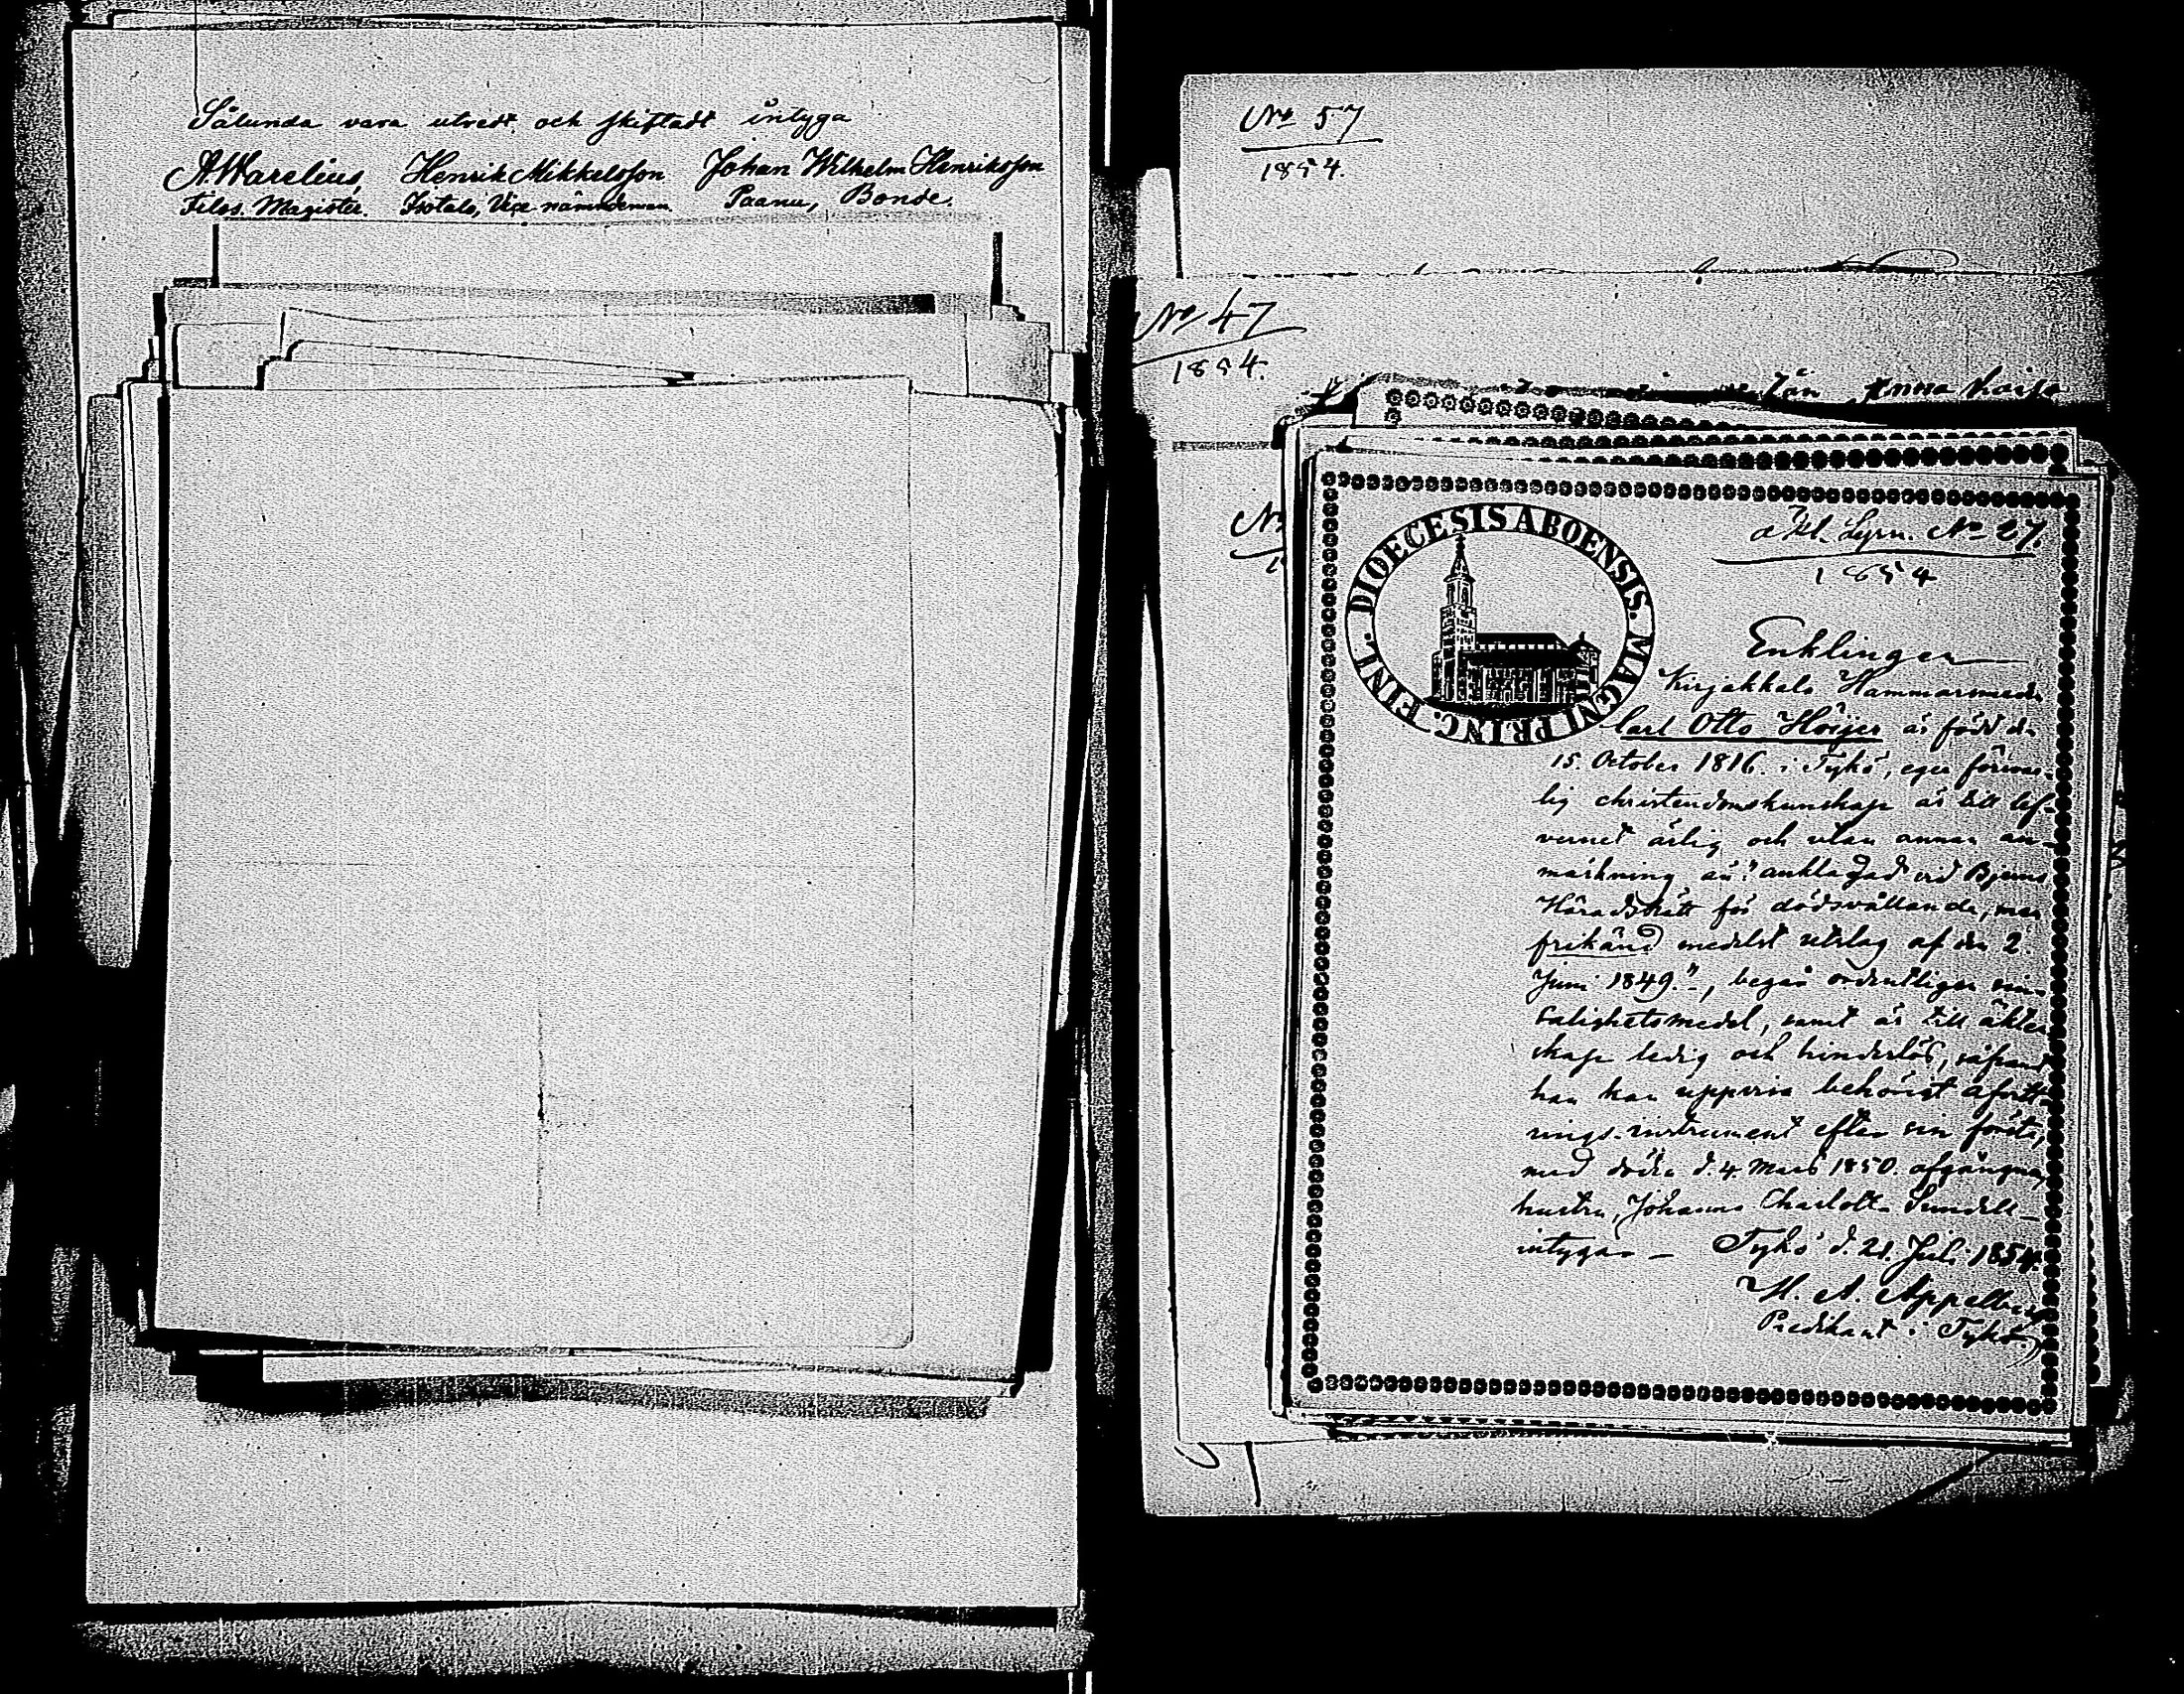 Sålunda vara utredt och skiftadt intyga
AWarelius, Henrik Mikkelsson Johan Wilhelm Henriksson
Filos. Magister. Isotalo, Vice nämndeman. Paanu, Bonde.
No 57
1854.
No 47
1854.
Anna Caisa
DIOECESIS ABOENSIS. MAGNI PRINC. FINL.
Lysn. No 27.
1854
Enklingen
Kirjakkala Hammarsmeden
Carl Otto Höijer är född den
15. October 1816. i Tykö, eger förswar-
lig christendomskunskap är till lef-
vernet ärlig och utan annan an-
märkning än: "anklagad vid Bjerno
Häradsrätt för dödsvållande, men
frikänd medelst utslag af den 2.
Juni 1849.", begår ordentligen sina
Salighetsmedel, samt är till äkten-
skap ledig och hinderlös, såframt
han kan uppvisa behörigt afvitt-
rings-instrument efter sin första,
med döden d. 4. Mars 1850. afgångna
hustru, Johanna Charlotta Sundell
intygar – Tykö d. 21. Juli 1854.
H. A. Appelberg
Predikant i Tykö.